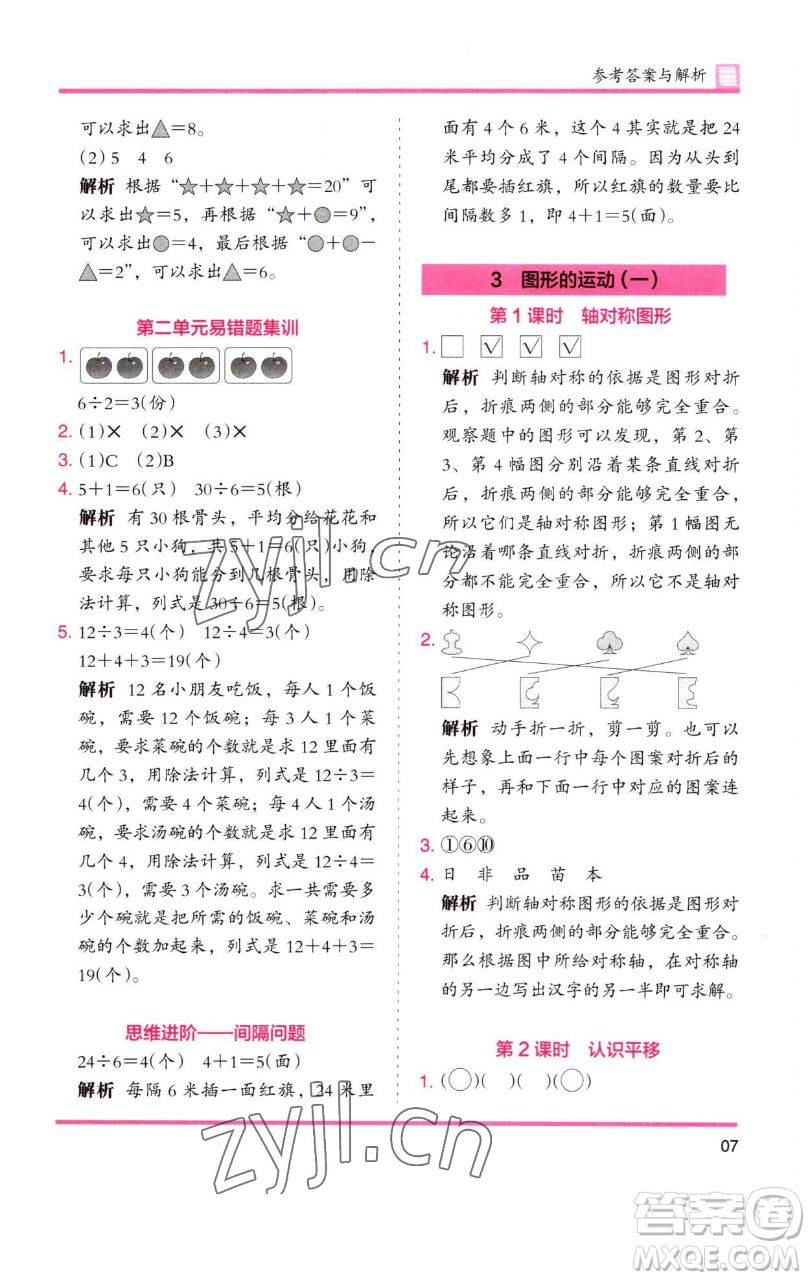 参考答案与解析
可以求出▲=8。
(2)5 4 6
解析 根据“★+★+★+★=20”可
以求出★=5，再根据“★+●=9”，
可以求出●=4，最后根据“●+●-
▲=2”，可以求出▲=6。
第二单元易错题集训
1.
6÷2=3(份)
2. (1)× (2)× (3)×
3. (1)C (2)B
4. 5+1=6(只) 30÷6=5(根)
解析 有30根骨头，平均分给花花和
其他5只小狗，共5+1=6(只)小狗，
要求每只小狗能分到几根骨头，用除
法计算，列式是30÷6=5(根)。
5. 12÷3=4(个) 12÷4=3(个)
12+4+3=19(个)
解析 12名小朋友吃饭，每人1个饭
碗，需要12个饭碗；每3人1个菜
碗，要求菜碗的个数就是求12里面有
几个3，用除法计算，列式是12÷3=
4(个)，需要4个菜碗；每4人1个汤
碗，要求汤碗的个数就是求12里面有
几个4，用除法计算，列式是12÷4=
3(个)，需要3个汤碗。求一共需要多
少个碗就是把所需的饭碗、菜碗和汤
碗的个数加起来，列式是12+4+3=
19(个)。
思维进阶——间隔问题
24÷6=4(个) 4+1=5(面)
解析 每隔6米插一面红旗，24米里
面有4个6米，这个4其实就是把24
米平均分成了4个间隔。因为从头到
尾都要插红旗，所以红旗的数量要比
间隔数多1，即4+1=5(面)。
3 图形的运动(一)
第1课时 轴对称图形
1. □ ☑ ☑ ☑
解析 判断轴对称的依据是图形对折
后，折痕两侧的部分能够完全重合。
观察题中的图形可以发现，第2、第
3、第4幅图分别沿着某条直线对折
后，折痕两侧的部分能够完全重合，
所以它们是轴对称图形；第1幅图无
论沿着哪条直线对折，折痕两侧的部
分都不能完全重合，所以它不是轴对
称图形。
2.
解析 动手折一折，剪一剪。也可以
先想象上面一行中每个图案对折后的
样子，再和下面一行中对应的图案连
起来。
3. ①⑥⑩
4. 日 非 品 苗 本
解析 判断轴对称图形的依据是图形对
折后，折痕两侧的部分能够完全重合。
那么根据图中所给对称轴，在对称轴
的另一边写出汉字的另一半即可求解。
第2课时 认识平移
1. (○)( )( )(○)
07
zyjl.cn
zyjl.cn
答案圈
MXQE.COM